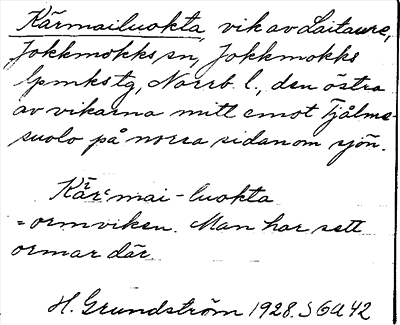 Kärmailuokta, vik av Laitaure,
Jokkmokks sn, Jokkmokks
lpmkstg, Norrb. l., den östra
av vikarna mitt emot Tjålme-
suolo på norra sidan om sjön.
Kärmai-luokta
= ormviken. Man har sett
ormar där.
H. Grundström 1928. S 6A 42